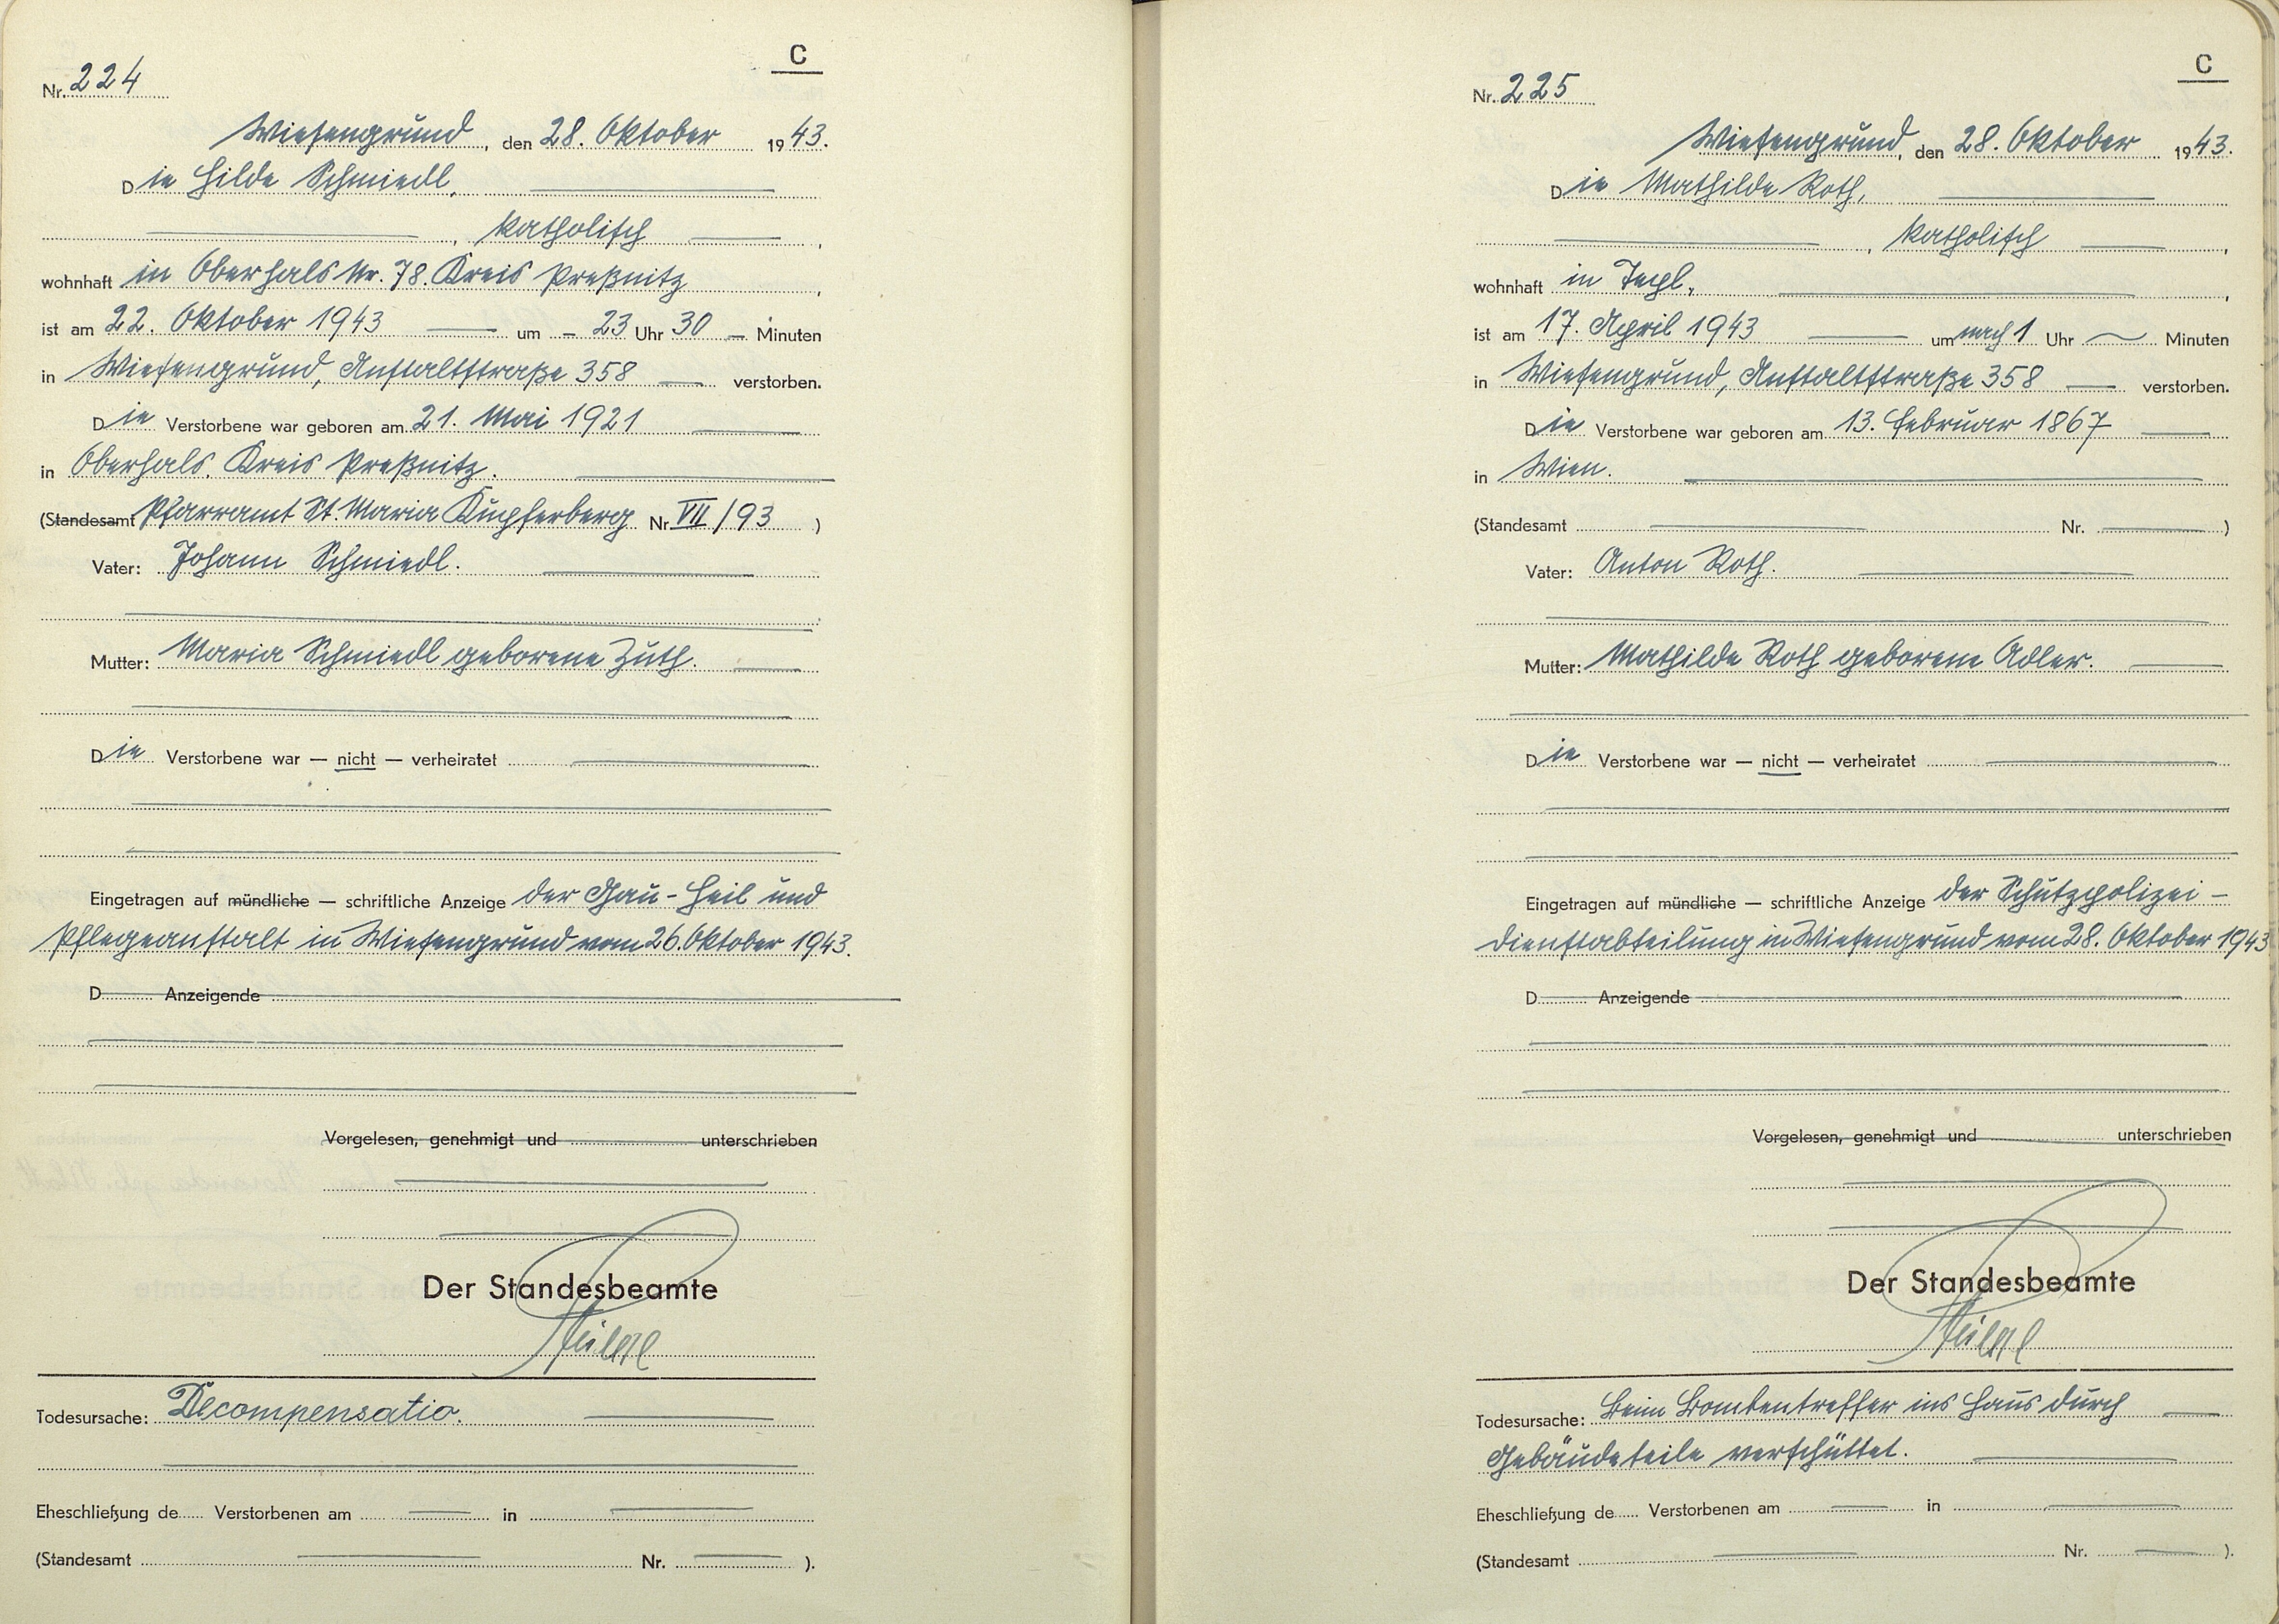 C
Nr. 224
Wiesengrund, den 28. Oktober 1943.
Die Hilde Schmiedl,
, katholisch ,
wohnhaft in Oberhals Nr. 78. Kreis Preßnitz ,
ist am 22. Oktober 1943 um – 23 Uhr 30 – Minuten
in Wiesengrund, Anstaltstraße 358 verstorben.
Die Verstorbene war geboren am 21. Mai 1921
in Oberhals, Kreis Preßnitz.
(Standesamt Pfarramt St. Maria Kupferberg Nr. VII/93 )
Vater: Johann Schmiedl.
Mutter: Maria Schmiedl geborene Zuth.
Die Verstorbene war — nicht — verheiratet
Eingetragen auf mündliche — schriftliche Anzeige der Gau-Heil und
Pflegeanstalt in Wiesengrund vom 26. Oktober 1943.
D Anzeigende
Vorgelesen, genehmigt und unterschrieben
Der Standesbeamte
Todesursache: Decompensatio.
Eheschließung de Verstorbenen am in
(Standesamt Nr. ).
C
Nr. 225
Wiesengrund, den 28. Oktober 1943.
Die Mathilde Roth,
, katholisch ,
wohnhaft in ,
ist am 17. April 1943 um nach 1 Uhr Minuten
in Wiesengrund, Anstaltstraße 358 verstorben.
Die Verstorbene war geboren am 13. Februar 1867
in Wien.
(Standesamt Nr. )
Vater: Anton Roth.
Mutter: Mathilde Roth geborene Adler.
Die Verstorbene war — nicht — verheiratet
Eingetragen auf mündliche — schriftliche Anzeige der Schutzpolizei-
dienstabteilung in Wiesengrund vom 28. Oktober 1943
D Anzeigende
Vorgelesen, genehmigt und unterschrieben
Der Standesbeamte
Todesursache: Beim Bombentreffer ins Haus durch
Gebäudeteile verschüttet.
Eheschließung de Verstorbenen am in
(Standesamt Nr. ).